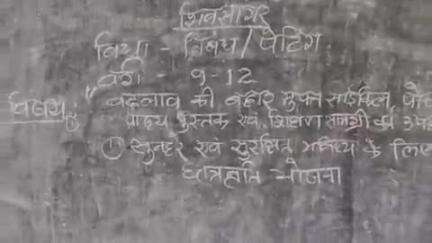 शिवसागर
विधा - निबंध/पेंटिंग
वर्ग - 9-12
विषय:- "बदलाव की बहार मुफ्त साईकिल, पौ
पाठ्य पुस्तक एवं शिक्षण सामग्री का उप
① सुन्दर एवं सुरक्षित भविष्य के लिए
छात्रवृति योजना